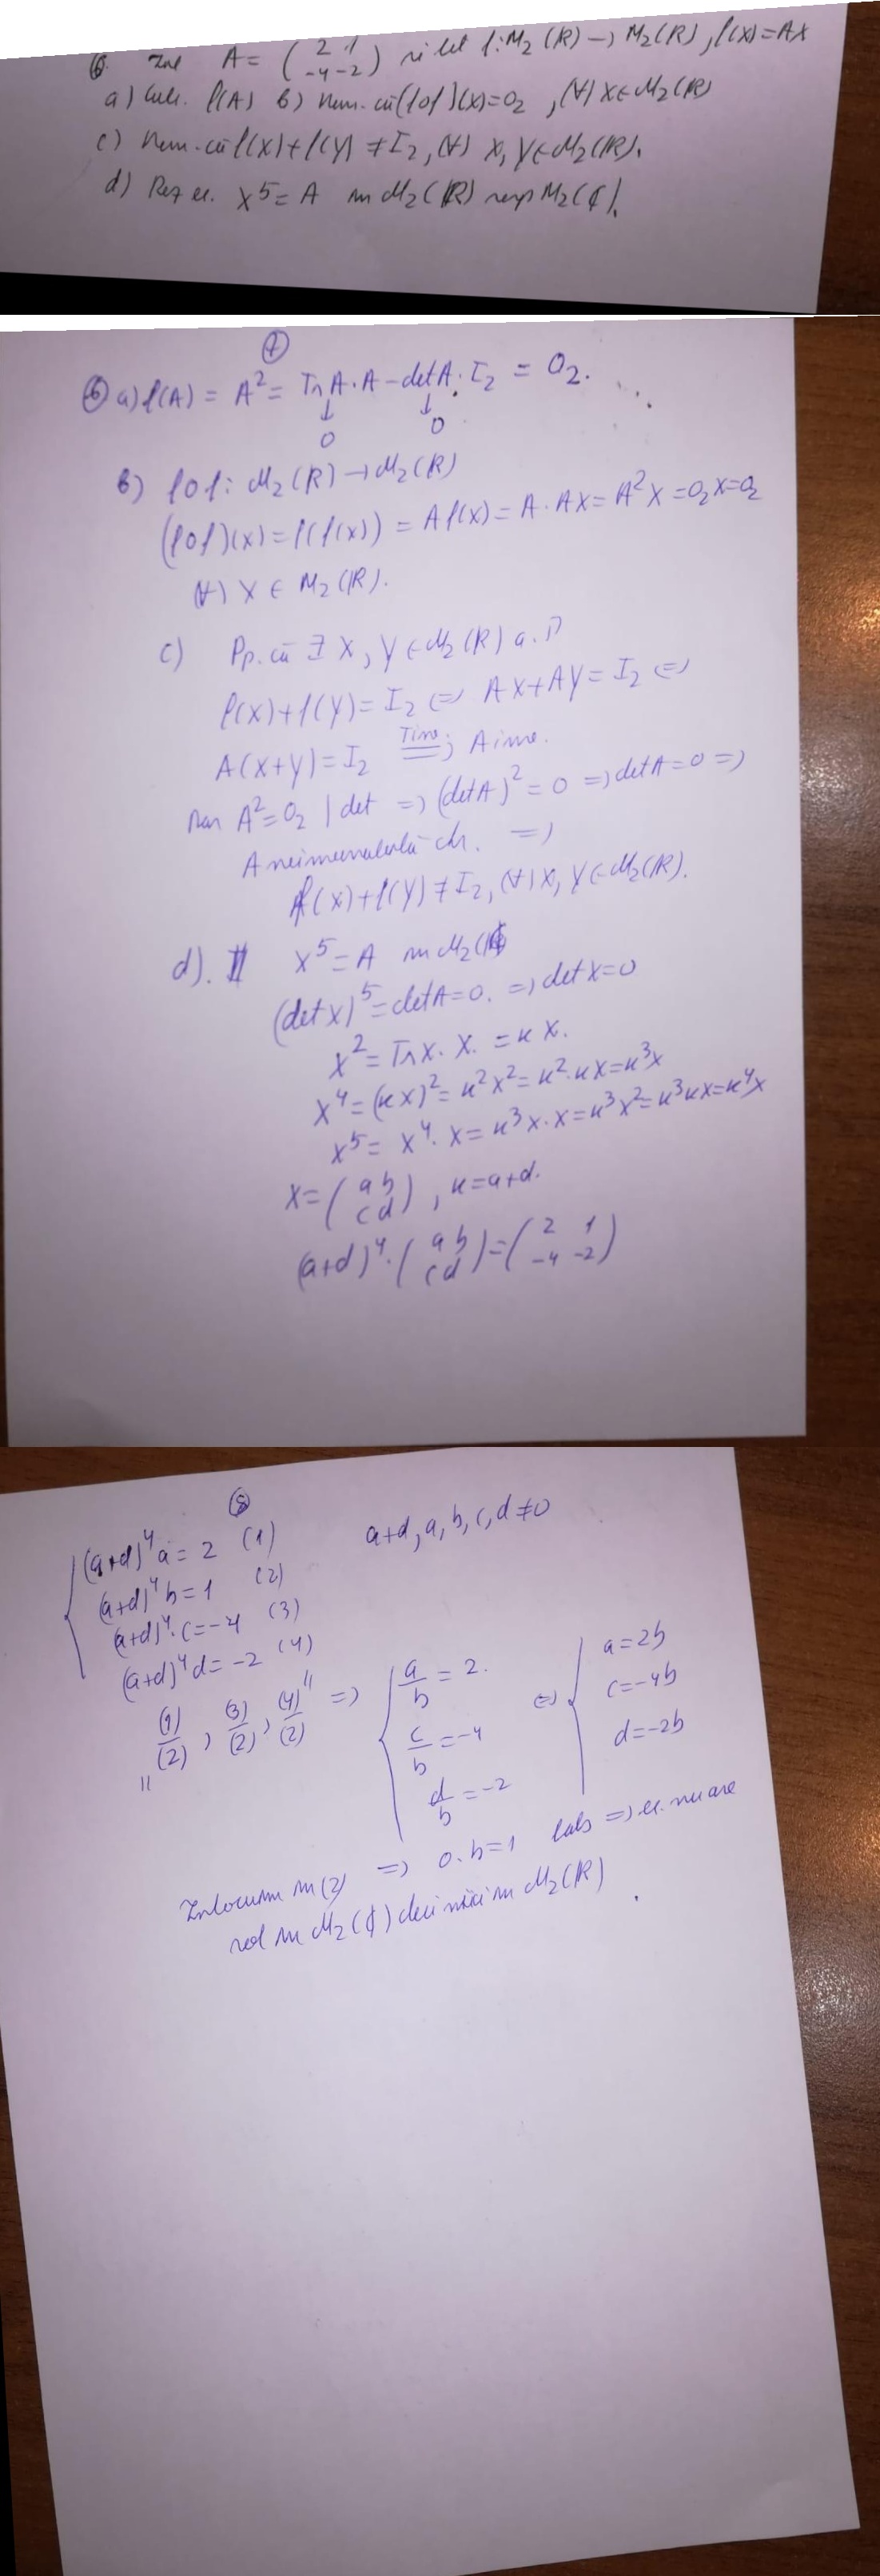 6. Fie A = (2 1 -4 -2) și fct f: M2(R) → M2(R), f(X) = AX
a) Calc. f(A) b) Dem. că (f∘f)(X) = O2, (∀) X ∈ M2(R)
c) Dem. că f(X) + f(Y) ≠ I2, (∀) X, Y ∈ M2(R).
d) Rez ec. X^5 = A în M2(R) resp M2(C).
7
6 a) f(A) = A^2 = Tr A · A - det A · I2 = O2.
↓ ↓
0 0
b) f∘f: M2(R) → M2(R)
(f∘f)(X) = f(f(X)) = A f(X) = A · AX = A^2 X = O2 X = O2
(∀) X ∈ M2(R).
c) Pp. că ∃ X, Y ∈ M2(R) a. î
f(X) + f(Y) = I2 ⇔ AX + AY = I2 ⇔
A(X+Y) = I2 ⇒ A inv.
Dar A^2 = O2 | det ⇒ (det A)^2 = 0 ⇒ det A = 0 ⇒
A neinversabilă ⇒
f(X) + f(Y) ≠ I2, (∀) X, Y ∈ M2(R).
d). X^5 = A în M2(C)
(det X)^5 = det A = 0. ⇒ det X = 0
X^2 = Tr X · X. = k X.
X^4 = (kX)^2 = k^2 X^2 = k^2 · kX = k^3 X
X^5 = X^4 · X = k^3 X · X = k^3 X^2 = k^3 kX = k^4 X
X = (a b c d), k = a+d.
(a+d)^4 · (a b c d) = (2 1 -4 -2)
8
(a+d)^4 a = 2 (1) a+d, a, b, c, d ≠ 0
(a+d)^4 b = 1 (2)
(a+d)^4 · c = -4 (3)
(a+d)^4 d = -2 (4)
"(1)/(2), (3)/(2), (4)/(2)" ⇒ { a/b = 2. ⇔ { a = 2b
c/b = -4 c = -4b
d/b = -2 d = -2b
Înlocuim în (2) ⇒ 0 · b = 1 fals ⇒ ec. nu are
sol în M2(C) deci nici în M2(R).